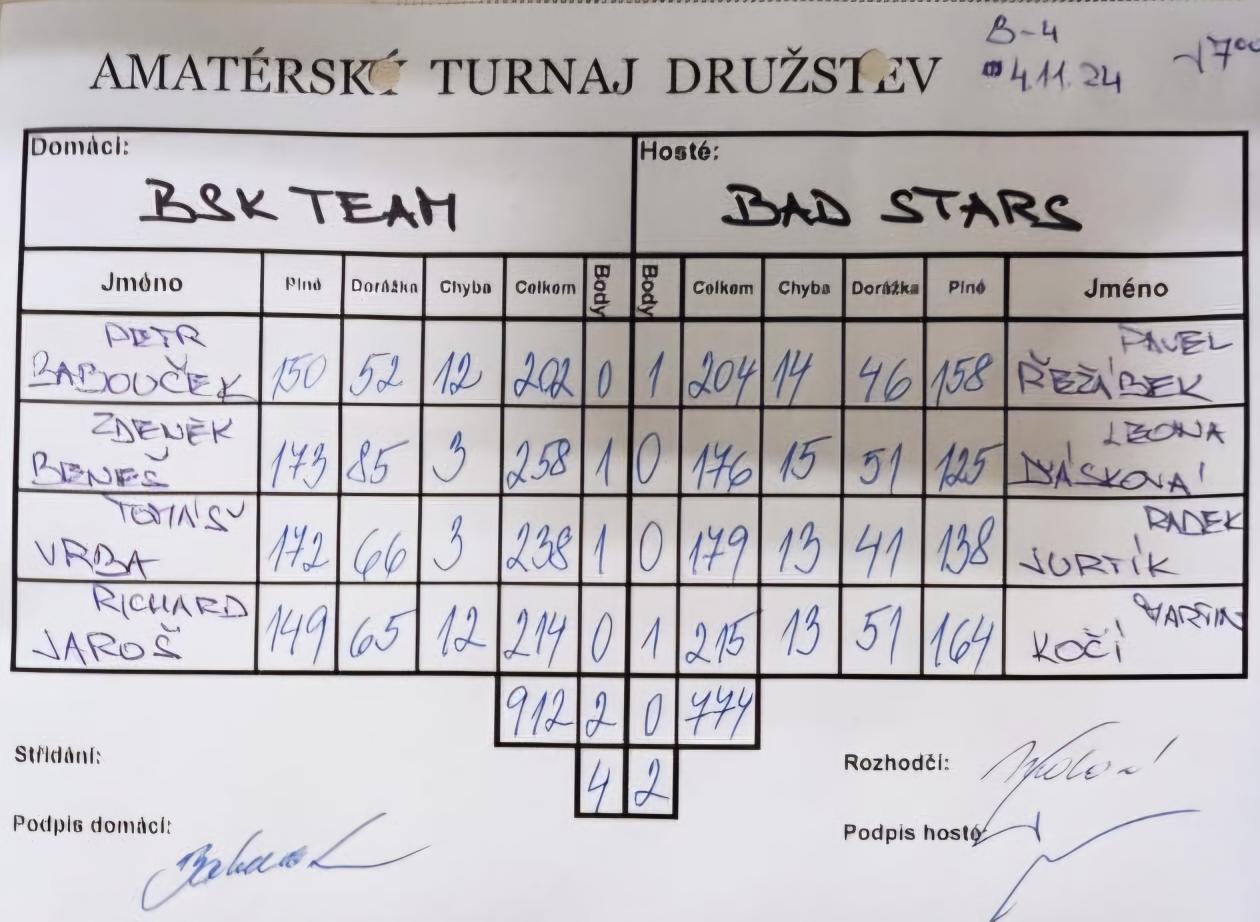 B-4
AMATÉRSKÝ TURNAJ DRUŽSTEV
4.11.24
17⁰⁰
Domácí: Hosté:
BSK TEAM BAD STARS
Jméno Plné Dorážka Chyba Celkem Body Body Celkem Chyba Dorážka Plné Jméno
PETR PAVEL
BABOUČEK 150 52 12 202 0 1 204 14 46 158 ŘEŽÁBEK
ZDENĚK LEONA
BENEŠ 173 85 3 258 1 0 176 15 51 125
TOMÁŠ RADEK
VRBA 172 66 3 238 1 0 179 13 41 138 JURTÍK
RICHARD MARTIN
JAROŠ 149 65 12 214 0 1 215 13 51 164 KOČÍ
912 2 0 774
4 2
Střídání: Rozhodčí:
Podpis domácí: Podpis hosté: